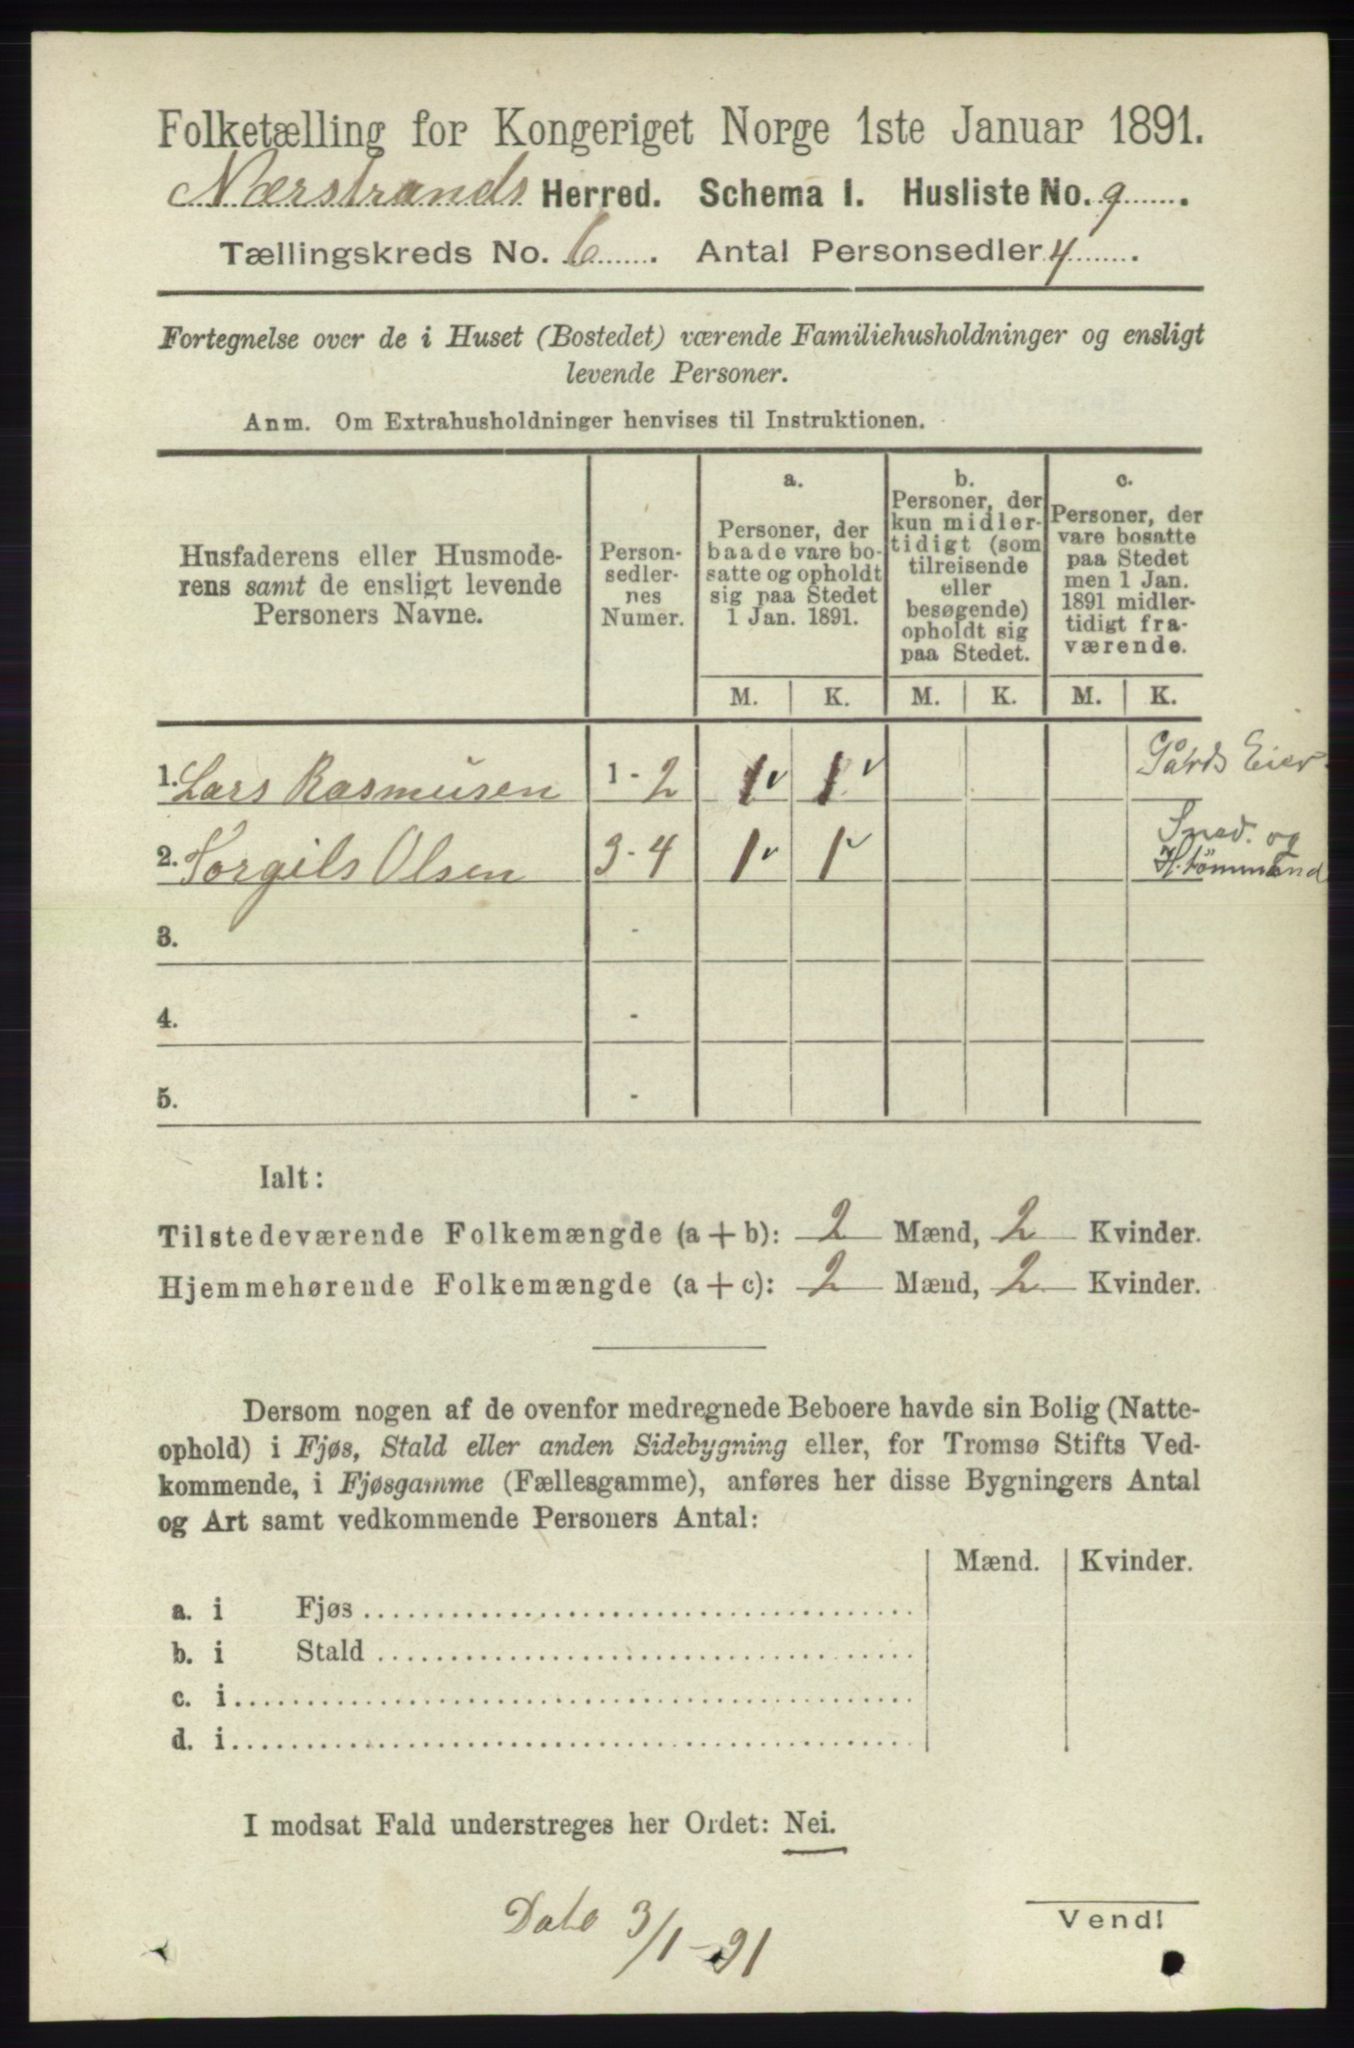 Folketælling for Kongeriget Norge 1ste Januar 1891.
Nærstrands Herred. Schema I. Husliste No. 9.
Tællingskreds No. 6. Antal Personsedler 4.
Fortegnelse over de i Huset (Bostedet) værende Familiehusholdninger og ensligt
levende Personer.
Anm. Om Extrahusholdninger henvises til Instruktionen.
Husfaderens eller Husmode-
rens samt de ensligt levende
Personers Navne.
Person-
sedler-
nes
Numer.
a.
Personer, der
baade vare bo-
satte og opholdt
sig paa Stedet
1 Jan. 1891.
b.
Personer, der
kun midler-
tidigt (som
tilreisende
eller
besøgende)
opholdt sig
paa Stedet.
c.
Personer, der
vare bosatte
paa Stedet
men 1 Jan.
1891 midler-
tidigt fra-
værende.
M. K. M. K. M. K.
1. Lars Rasmusen 1 - 2 1 1 Gårds Eier
2. Torgils Olsen 3 - 4 1 1 Sned. og
3. -
4. -
5. -
Ialt:
Tilstedeværende Folkemængde (a + b): 2 Mænd, 2 Kvinder.
Hjemmehørende Folkemængde (a + c): 2 Mænd, 2 Kvinder.
Dersom nogen af de ovenfor medregnede Beboere havde sin Bolig (Natte-
ophold) i Fjøs, Stald eller anden Sidebygning eller, for Tromsø Stifts Ved-
kommende, i Fjøsgamme (Fællesgamme), anføres her disse Bygningers Antal
og Art samt vedkommende Personers Antal:
Mænd. Kvinder.
a. i Fjøs
b. i Stald
c. i
d. i
I modsat Fald understreges her Ordet: Nei.
Dato 3/1-91
Vend!